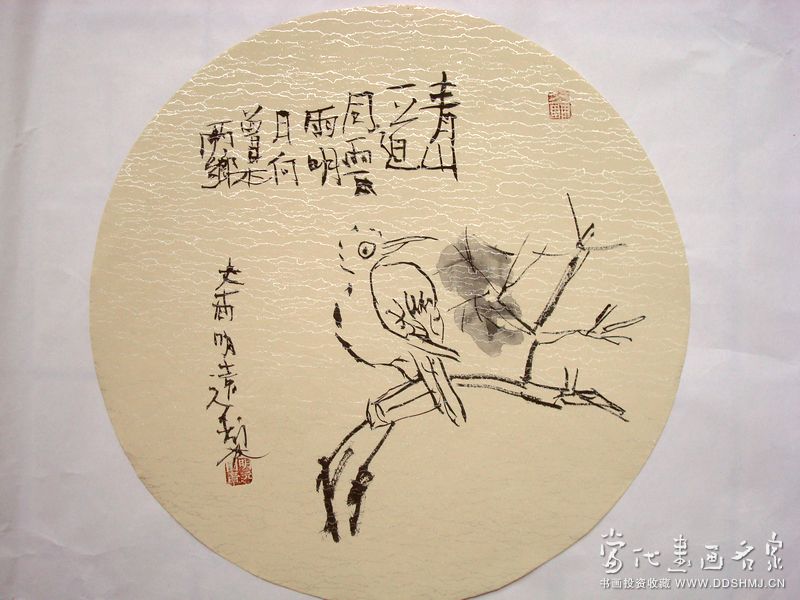 青山
一道
同雲
雨明
月何
曾是
兩鄉
當代書画名家
书画投资收藏 WWW.DDSHMJ.CN